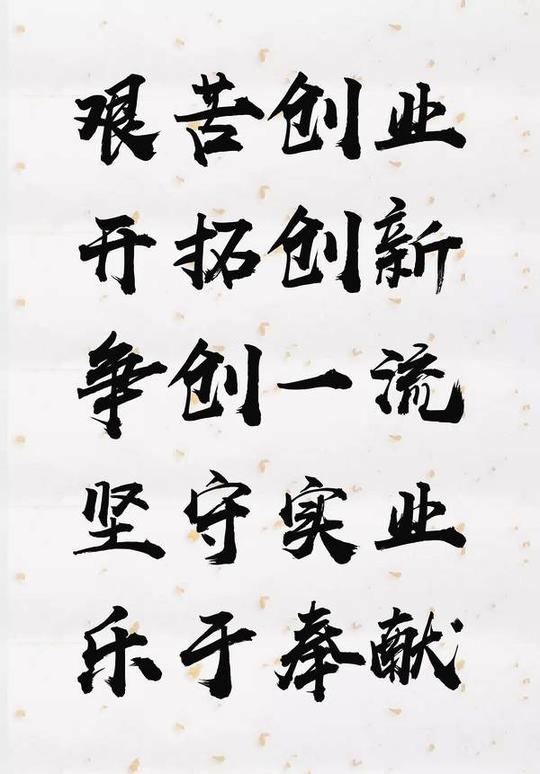 艰苦创业
开拓创新
争创一流
坚守实业
乐于奉献